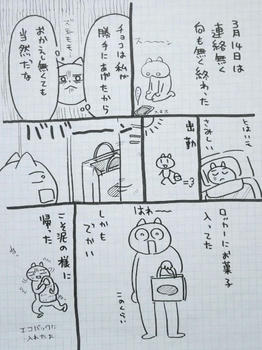 3月14日は
連絡無く
何も無く終わった
スーーン
チョコは私が
勝手にあげたから
おかえし無くても
当然だな
ズモモモ
とはいえ
さみしい
出勤
バババーーン
ロッカーにお菓子
入ってた
はわ〜〜
このくらい
しかも
でかい
こそ泥の様に
帰った
エコバックに
入れたよ